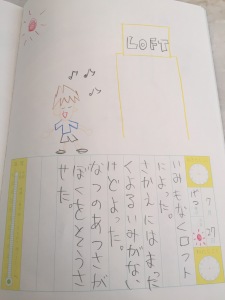 LOFT
7
27
いみもなくロフト
によった。
さかえにはまった
くよるいみがない
けどよった。
なつのあつさが
ぼくをそうさ
せた。